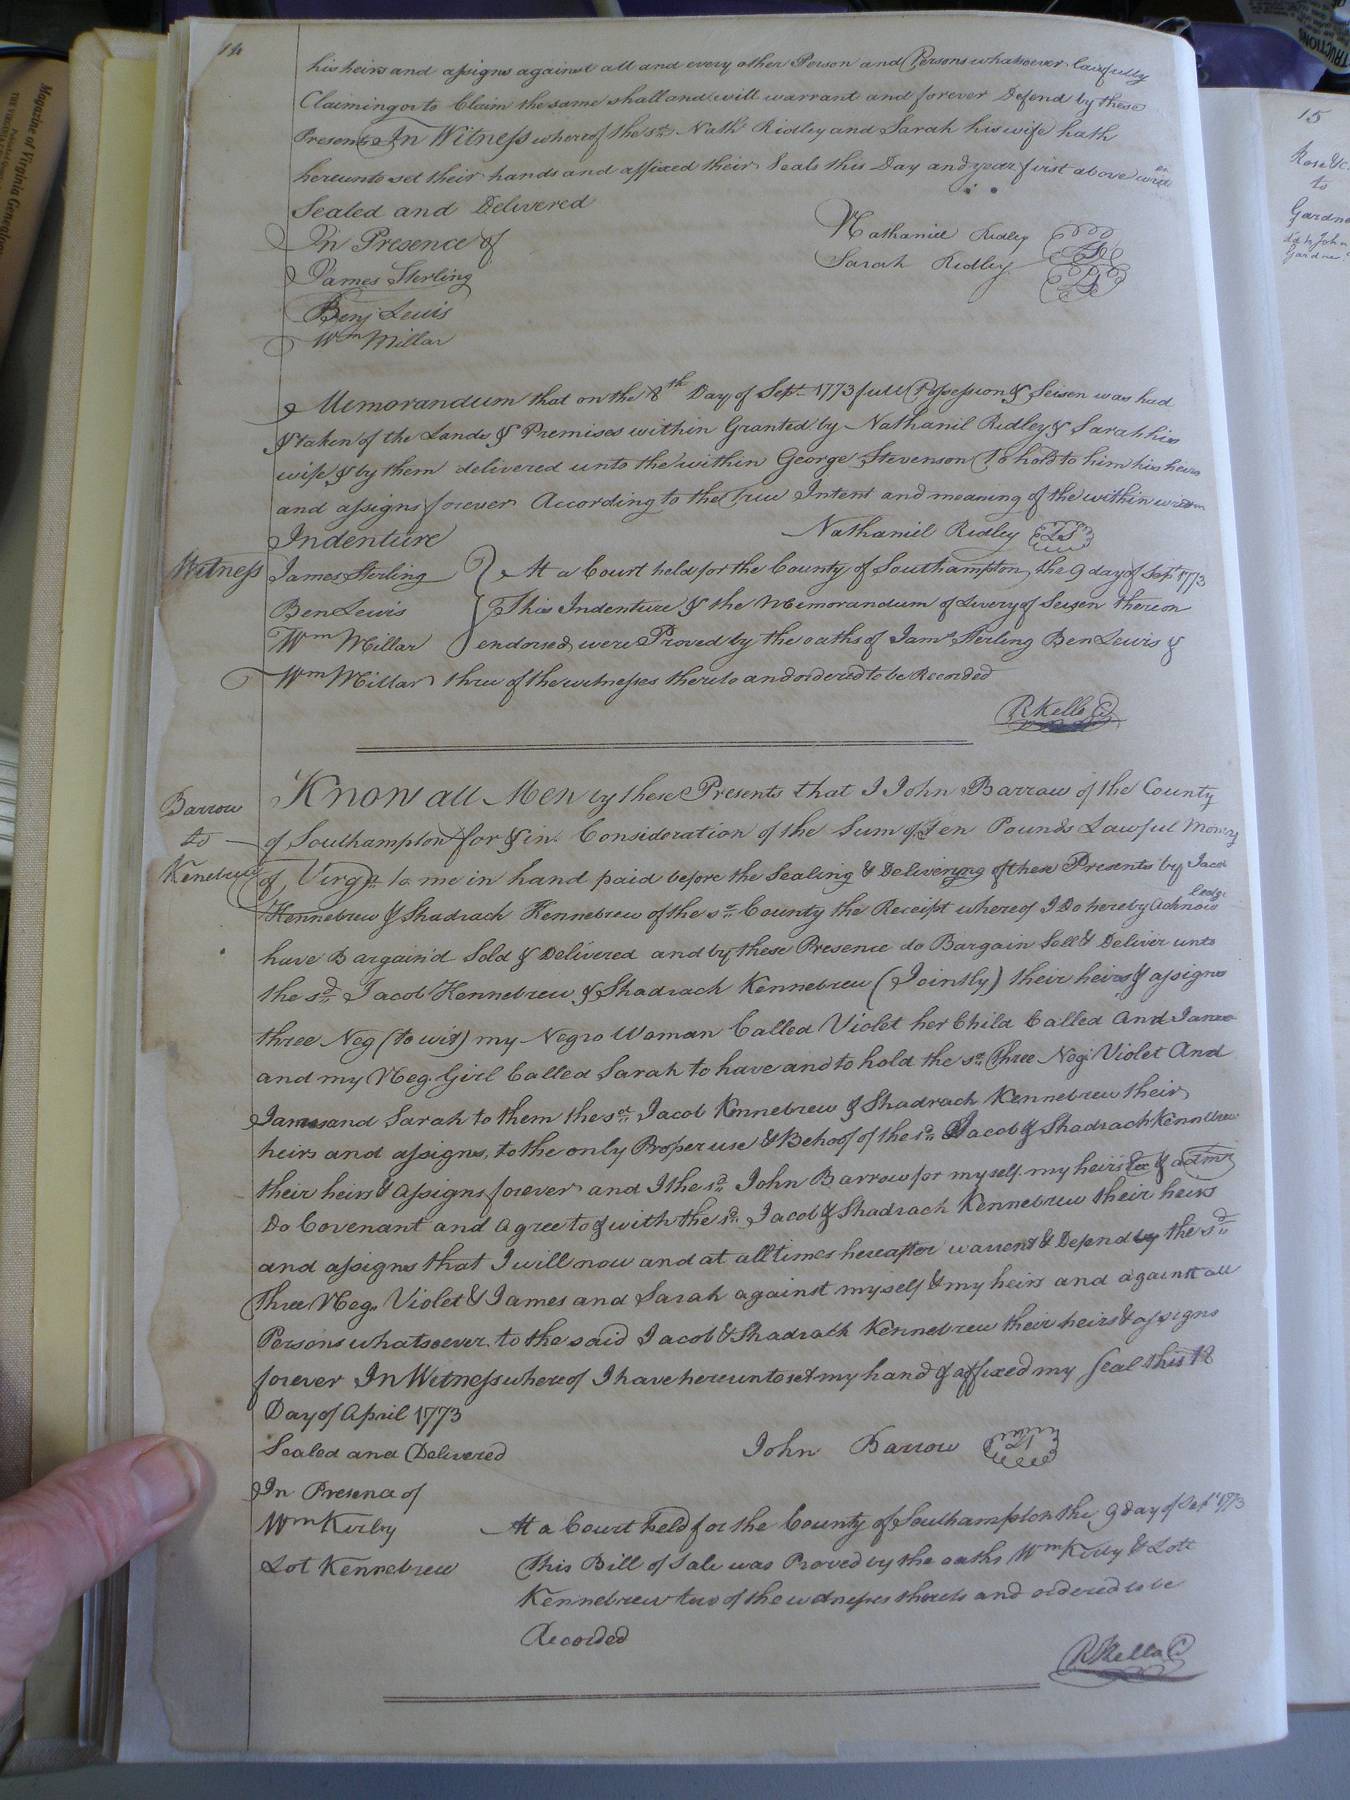 14
his heirs and assigns against all and every other Person and Persons whatsoever lawfully
Claiming or to Claim the same shall and will warrant and forever Defend by these
Presents In Witness whereof the sd. Nathl Ridley and Sarah his wife hath
hereunto set their hands and affixed their Seals this Day and year first above
Sealed and Delivered
In Presence of
Nathaniel Ridley LS
Sarah Ridley LS
James Sterling
Benj Lewis
Wm Millar
Memorandum that on the 8th Day of Sept 1773 full Possession & Seisen was had
& taken of the Lands & Premises within Granted by Nathanil Ridley & Sarah his
wife & by them delivered unto the within George Stevenson To hold to him his heirs
and assigns forever According to the True Intent and meaning of the within written
Indenture
Nathaniel Ridley LS
Witness
James Sterling
Ben Lewis
Wm Millar
At a Court held for the County of Southampton the 9 day of Sept 1773
This Indenture & the Memorandum of Livery of Seisen thereon
endorsed were Proved by the oaths of Jams Sterling Ben Lewis &
Wm Millar three of the witnesses thereto and ordered to be Recorded
R Kello C
Barrow
to
Kenebrew
Know all Men by these Presents that I John Barrow of the County
of Southampton for & in Consideration of the Sum of Ten Pounds Lawful Money
of Virga. to me in hand paid before the Sealing & Delivering of these Presents by Jacob
Kennebrew & Shadrach Kennebrew of the sd. County the Receipt whereof I Do hereby Acknowledge
have Bargain'd Sold & Delivered and by these Presence do Bargain Sell & Deliver unto
the sd. Jacob Kennebrew & Shadrach Kennebrew (Jointly) their heirs & assigns
three Neg (to wit) my Negro Woman Called Violet her Child Called And James
and my Neg. Girl Called Sarah to have and to hold the sd. Three Neg. Violet And
James and Sarah to them the sd. Jacob Kennebrew & Shadrach Kennebrew their
heirs and assigns, to the only Proper use & Behoof of the sd. Jacob & Shadrach Kennebrew
their heirs & assigns forever and I the sd. John Barrow for myself my heirs Ex & admrs
Do Covenant and agree to & with the sd. Jacob & Shadrach Kennebrew their heirs
and assigns that I will now and at all times hereafter warrent & Defend by the sd.
three Neg. Violet & James and Sarah against myself & my heirs and against all
Persons whatsoever to the said Jacob & Shadrach Kennebrew their heirs & assigns
forever In Witness whereof I have hereunto set my hand & affixed my Seal this 18
Day of April 1773
Sealed and Delivered
John Barrow LS
In Presence of
Wm Kirby
Lot Kennebrew
At a Court held for the County of Southampton the 9 day of Sept 1773
This Bill of Sale was Proved by the oaths Wm Kirby & Lott
Kennebrew two of the witnesses thereto and ordered to be
Recorded
R Kello C
15
Rose &c.
to
Gardne
John
Gardne
Magazine of Virginia Genealogy